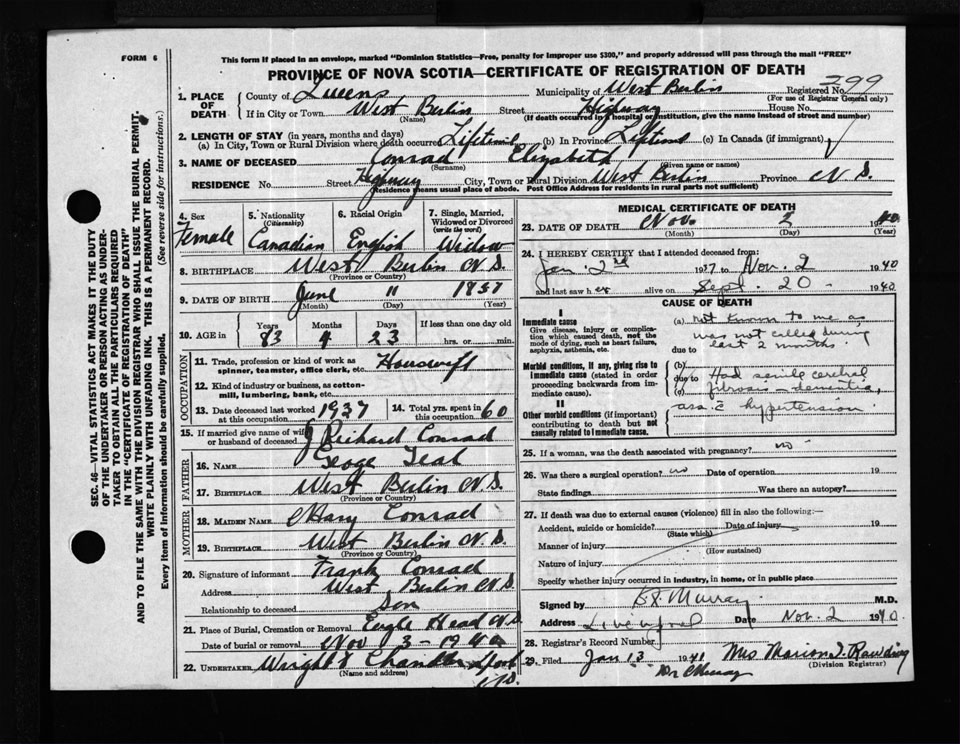 FORM 6
This form if placed in an envelope, marked "Dominion Statistics—Free, penalty for improper use $300," and properly addressed will pass through the mail "FREE"
PROVINCE OF NOVA SCOTIA—CERTIFICATE OF REGISTRATION OF DEATH
1. PLACE OF DEATH County of Queens Municipality of West Berlin Registered No. 299
(For use of Registrar General only)
If in City or Town West Berlin Street Highway House No.
(Name) (If death occurred in hospital or institution, give the name instead of street and number)
2. LENGTH OF STAY (in years, months and days)
(a) In City, Town or Rural Division where death occurred Lifetime (b) In Province Lifetime (c) In Canada (if immigrant)
3. NAME OF DECEASED Conrad Elizabeth
(Surname) (Given name or names)
RESIDENCE No. Street Highway City, Town or Rural Division West Berlin Province N.S.
(Residence means usual place of abode. Post Office Address for residents in rural parts not sufficient)
SEC. 46—VITAL STATISTICS ACT MAKES IT THE DUTY
OF THE UNDERTAKER OR PERSON ACTING AS UNDER-
TAKER TO OBTAIN ALL THE PARTICULARS REQUIRED
IN THE "CERTIFICATE OF REGISTRATION OF DEATH"
AND TO FILE THE SAME WITH THE DIVISION REGISTRAR WHO SHALL ISSUE THE BURIAL PERMIT.
WRITE PLAINLY WITH UNFADING INK. THIS IS A PERMANENT RECORD.
Every item of information should be carefully supplied. (See reverse side for instructions.)
4. Sex 5. Nationality (Citizenship) 6. Racial Origin 7. Single, Married, Widowed or Divorced (write the word)
Female Canadian English Widow
8. BIRTHPLACE West Berlin N.S.
(Province or Country)
9. DATE OF BIRTH June 11 1857
(Month) (Day) (Year)
10. AGE in Years Months Days If less than one day old
83 4 23 hrs. or min.
OCCUPATION
11. Trade, profession or kind of work as spinner, teamster, office clerk, etc. Housewife
12. Kind of industry or business, as cotton-mill, lumbering, bank, etc.
13. Date deceased last worked at this occupation 1937 14. Total yrs. spent in this occupation 60
15. If married give name of wife or husband of deceased J Richard Conrad
FATHER
16. NAME
17. BIRTHPLACE West Berlin N.S.
(Province or Country)
MOTHER
18. MAIDEN NAME Mary Conrad
19. BIRTHPLACE West Berlin N.S.
(Province or Country)
20. Signature of informant Frank Conrad
Address West Berlin N.S.
Relationship to deceased Son
21. Place of Burial, Cremation or Removal Eagle Head N.S.
Date of burial or removal Nov 3 - 1940
22. UNDERTAKER Wright Chandler
(Name and address) N.S.
MEDICAL CERTIFICATE OF DEATH
23. DATE OF DEATH Nov. 2 1940
(Month) (Day) (Year)
24. I HEREBY CERTIFY that I attended deceased from:
Jan. 2nd 1937 to Nov. 2 1940
and last saw her alive on Sept. 20 - 1940
CAUSE OF DEATH
I
Immediate cause
Give disease, injury or complication which caused death, not the mode of dying, such as heart failure, asphyxia, asthenia, etc.
(a) not known to me as
was not called during
due to last 2 months.
Morbid conditions, if any, giving rise to immediate cause (stated in order proceeding backwards from immediate cause).
(b)
due to Had senile cerebral
(c) fibrosis - dementia,
II
Other morbid conditions (if important) contributing to death but not causally related to immediate cause.
hypertension
25. If a woman, was the death associated with pregnancy? no
26. Was there a surgical operation? no Date of operation 19
State findings Was there an autopsy?
27. If death was due to external causes (violence) fill in also the following:—
Accident, suicide or homicide? Date of injury 19
(State which)
Manner of injury
(How sustained)
Nature of injury
Specify whether injury occurred in industry, in home, or in public place
Signed by Murray M.D.
Address Liverpool Date Nov. 2 1940
28. Registrar's Record Number
29. Filed Jan 13 1941 Mrs Marion J. Rawding
(Division Registrar)
Dr Murray